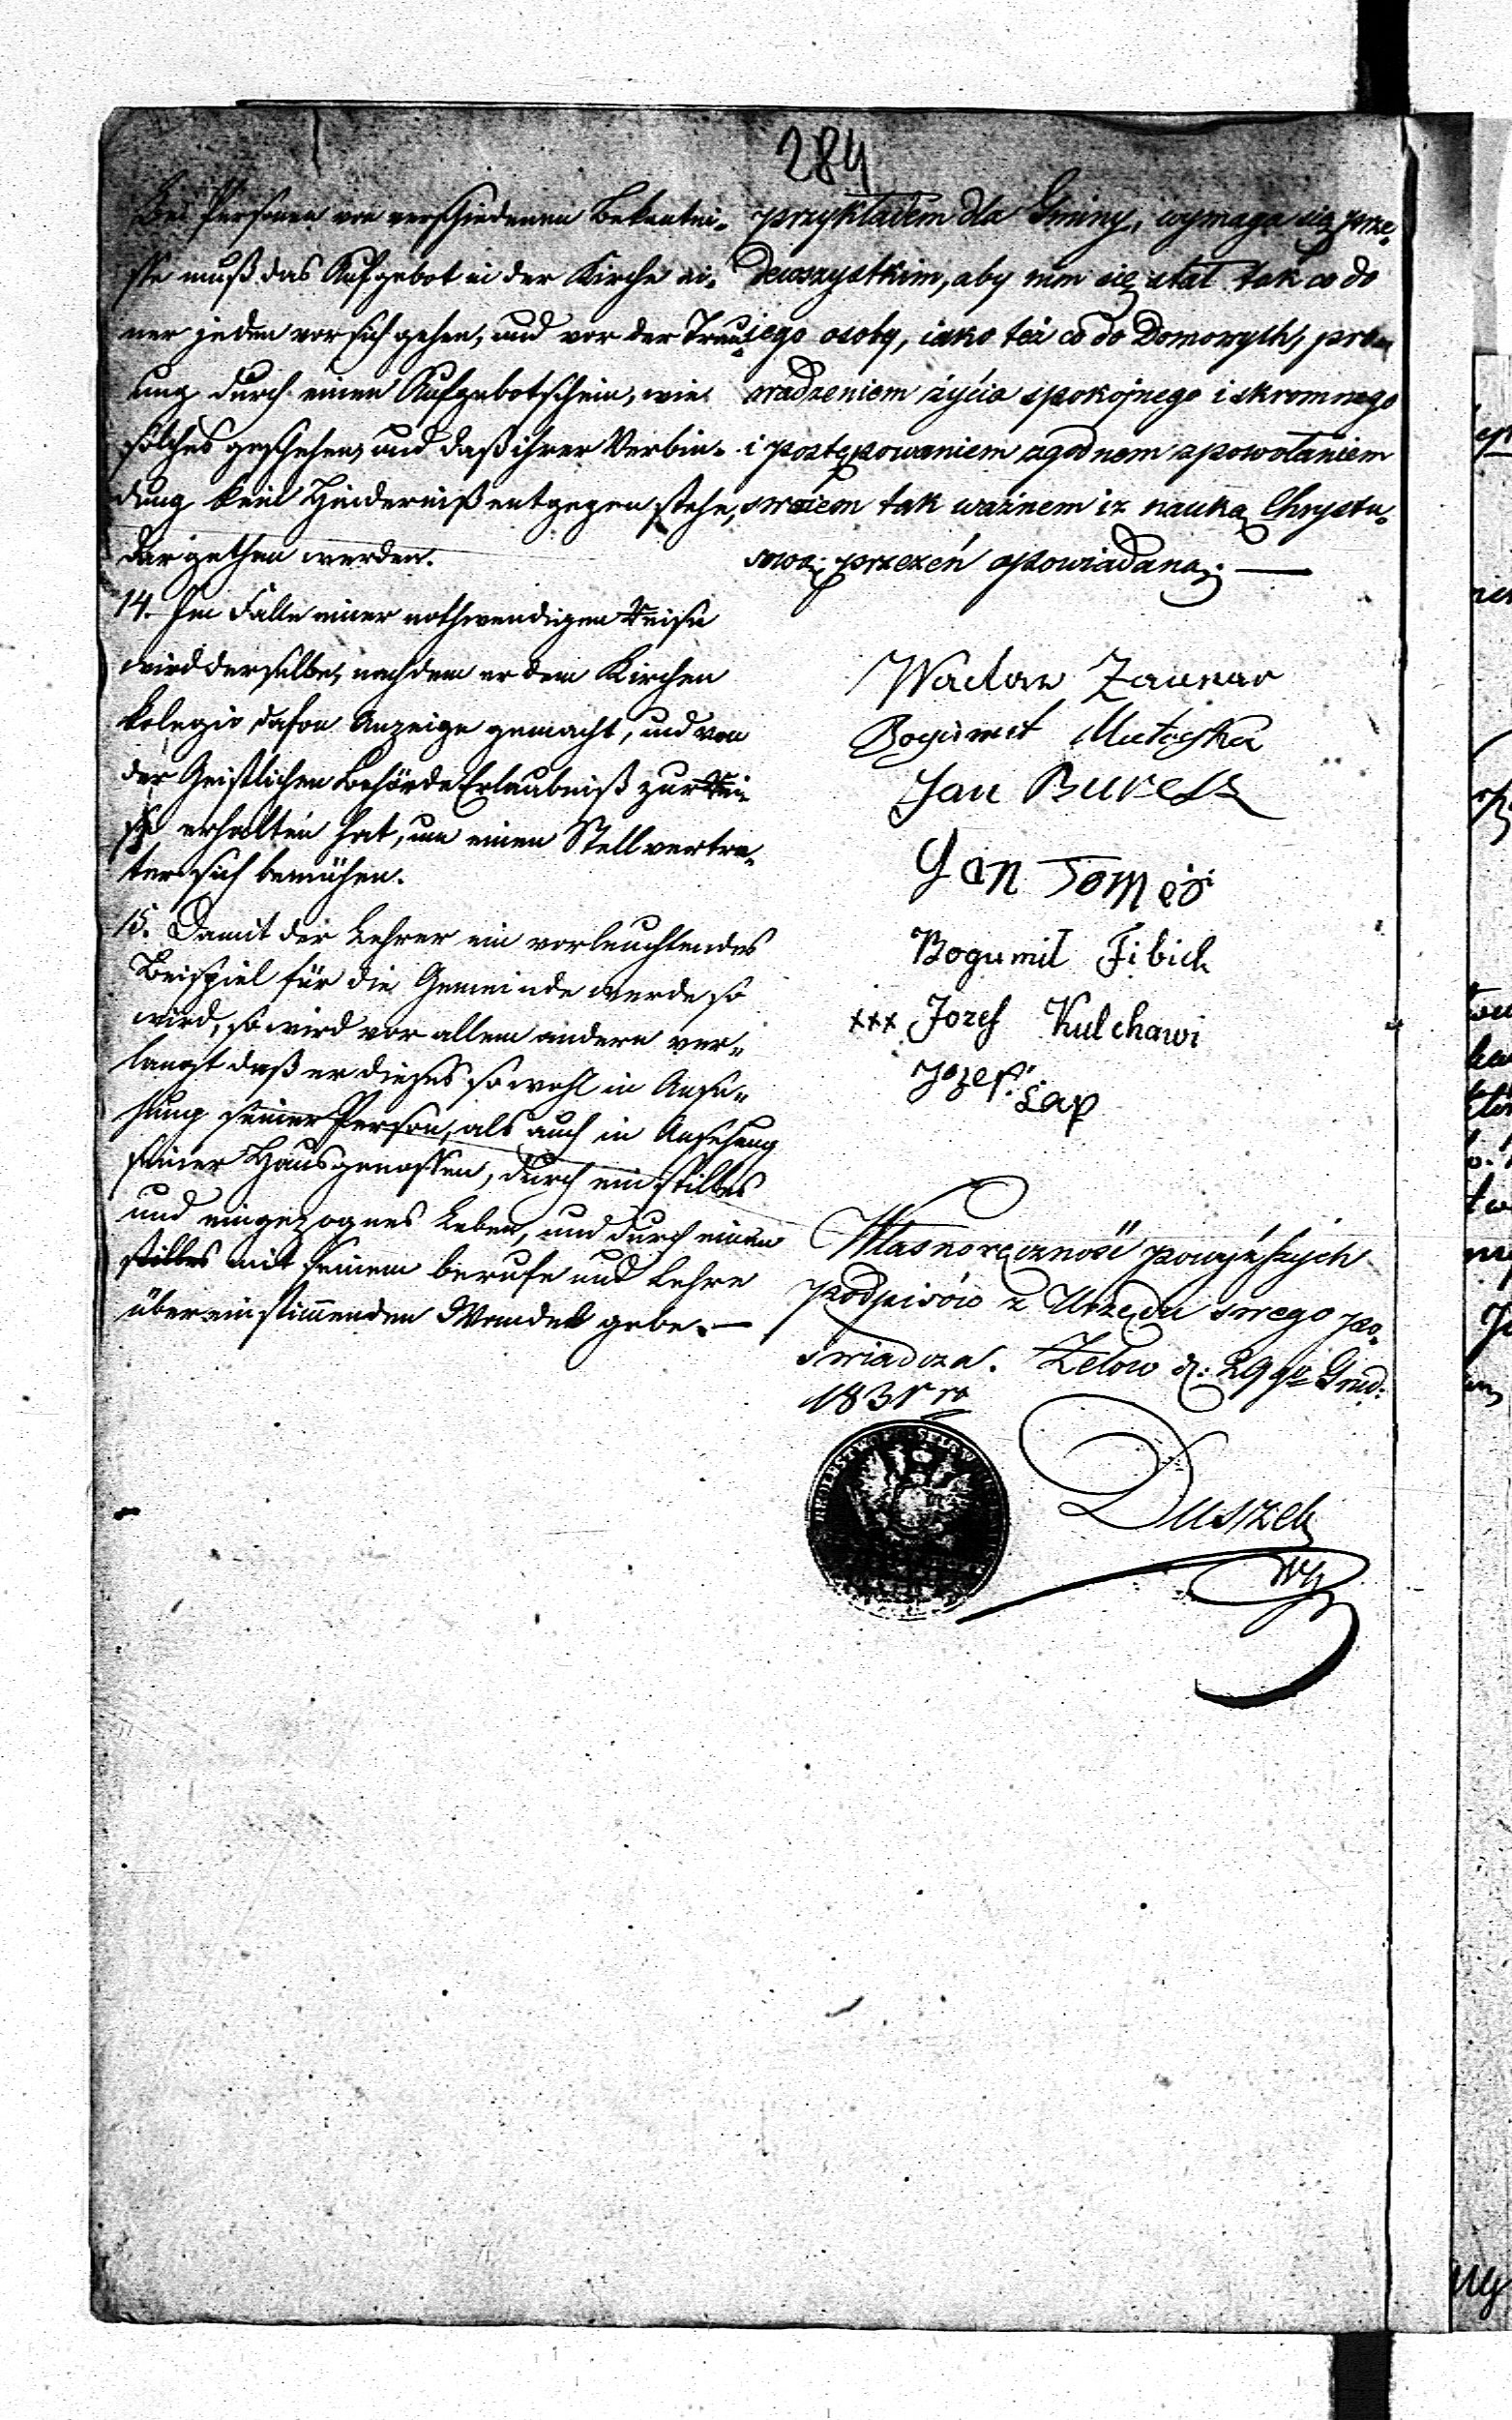 284
Bei Personen von verschiedenem Bekentni-
sse muß das Aufgebot in der Kirche ei-
ner jeden vor sich gehen, und vor der Trau-
ung durch einen Aufgebotschein, wie
solches geschehen, und daß ihrer Verbin-
dung kein Hinderniß entgegen stehe,
dargethan werden.
14. Im Falle einer nothwendigen Reise
wird derselbe, nachdem er dem Kirchen
kolegio dafon Anzeige gemacht, und von
der Geistlichen Behörde Erlaubniß zur Rei-
se erhalten hat, um einen Stellvertre-
ter sich bemühen.
15. Damit der Lehrer ein vorleuchtendes
Beispiel für die Gemeinde werde so
wird, so wird vor allem andern ver-
langt daß er dieses sowohl in Anse-
hung seiner Person, als auch in Ansehung
seiner Hausgenossen, durch ein stilles
und eingezognes Leben, und durch einen
stilles mit seinem berufe und Lehre
übereinstimmenden Wandel gebe. —
przykładem dla Gminy, wymaga się prze-
dewszystkim, aby nim się stał tak co do
jego osoby, iako też co do Domowych, pro-
wadzeniem życia spokojnego i skromnego
i postępowaniem zgodnem z powołaniem
swoiem tak ważnem i z nauką Chrystu-
sową przezeń opowiadaną. —
Waclaw Zaunar
Bogumił Matoyska
Jan Buresz
Jan Tomeś
Bogumil Fibich
xxx Jozef Kulchawi
Jozef: Łap
Własnoręczność powyższych
podpisów z Urzędu swego po-
świadcza. Zelow d: 29go Grud:
1831 ro
Duszek